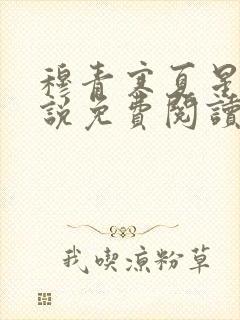 穆青寒夏星
說免費閱讀
我喫涼粉草